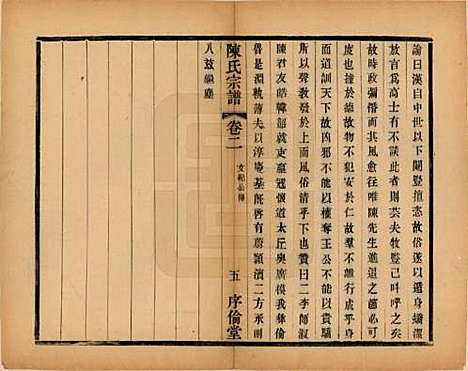 論曰漢自中世以下閹豎擅恣故俗遂以遁身矯潔
放言爲高士有不談此者則芸夫牧豎已呌呼之矣
故時政彌惛而其風愈往唯陳先生進退之節必可
度也據於德故物不犯安於仁故羣不離行成乎身
而道訓天下故凶邪不能以權奪王公不能以貴驕
所以聲教發於上而風俗清乎下也贊曰二李師淑
陳君友皓韓韶就吏羸寇懷道太丘奧廣模我彝倫
曾是淵軌薄夫以淳慶基既啓有蔚潁濱二方承則
八玆繼塵
陳氏宗譜
卷二
文範公傳
五
序倫堂